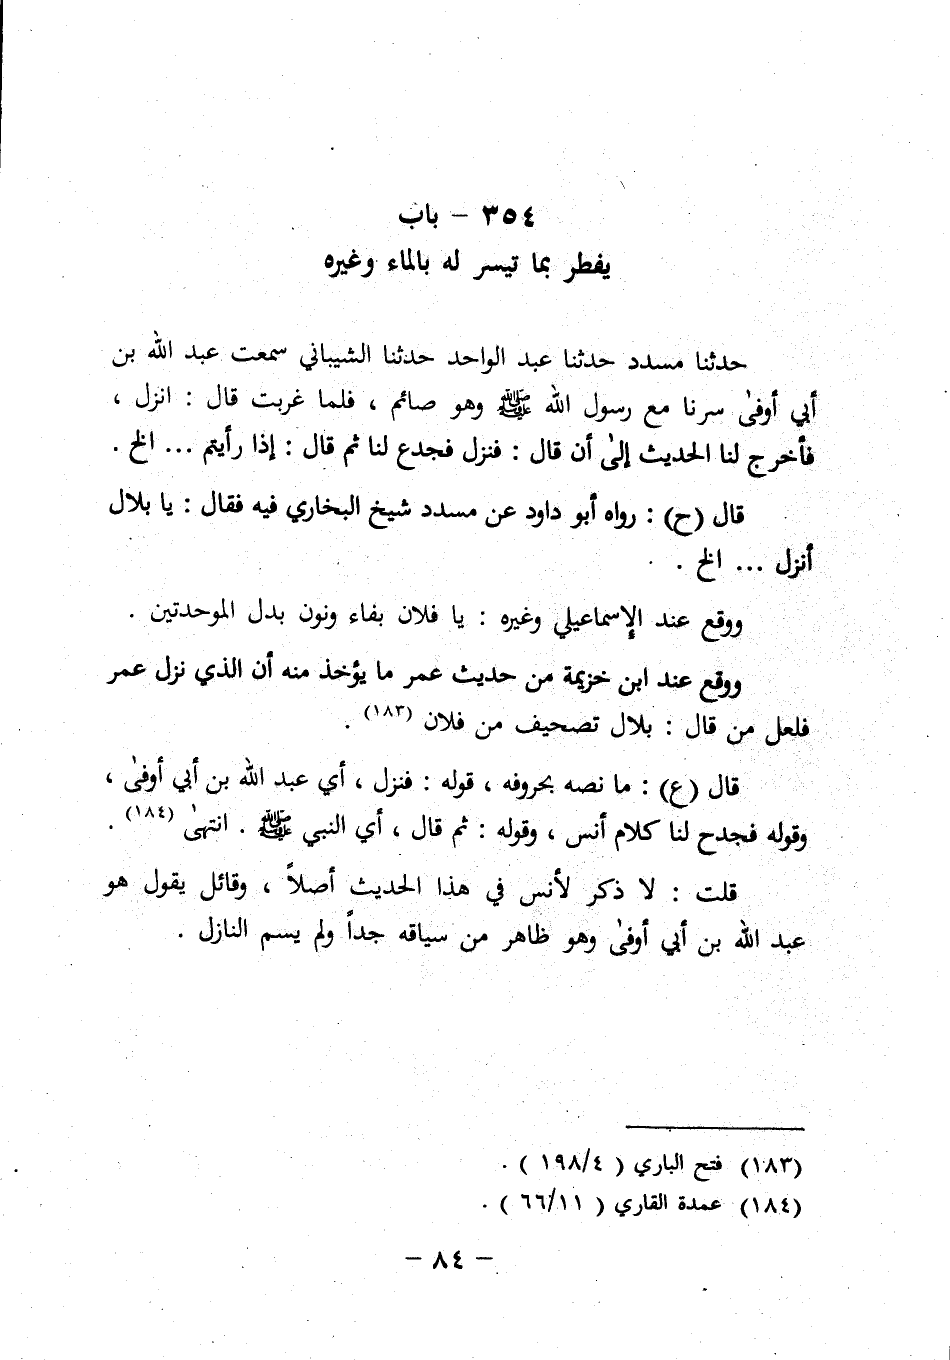 ٣٥٤ – باب
يفطر بما تيسر له بالماء وغيره
حدثنا مسدد حدثنا عبد الواحد حدثنا الشيباني سمعت عبد الله بن
أبي أوفىٰ سرنا مع رسول الله ﷺ وهو صائم ، فلما غربت قال : انزل ،
فأخرج لنا الحديث إلىٰ أن قال : فنزل فجدع لنا ثم قال : إذا رأيتم ... الخ .
قال (ح) : رواه أبو داود عن مسدد شيخ البخاري فيه فقال : يا بلال
أنزل ... الخ .
ووقع عند الإسماعيلي وغيره : يا فلان بفاء ونون بدل الموحدتين .
ووقع عند ابن خزيمة من حديث عمر ما يؤخذ منه أن الذي نزل عمر
فلعل من قال : بلال تصحيف من فلان (١٨٣) .
قال (ع) : ما نصه بحروفه ، قوله : فنزل ، أي عبد الله بن أبي أوفىٰ ،
وقوله فجدح لنا كلام أنس ، وقوله : ثم قال ، أي النبي ﷺ . انتهىٰ (١٨٤) .
قلت : لا ذكر لأنس في هذا الحديث أصلاً ، وقائل يقول هو
عبد الله بن أبي أوفىٰ وهو ظاهر من سياقه جداً ولم يسم النازل .
(١٨٣) فتح الباري ( ١٩٨/٤ ) .
(١٨٤) عمدة القاري ( ٦٦/١١ ) .
– ٨٤ –